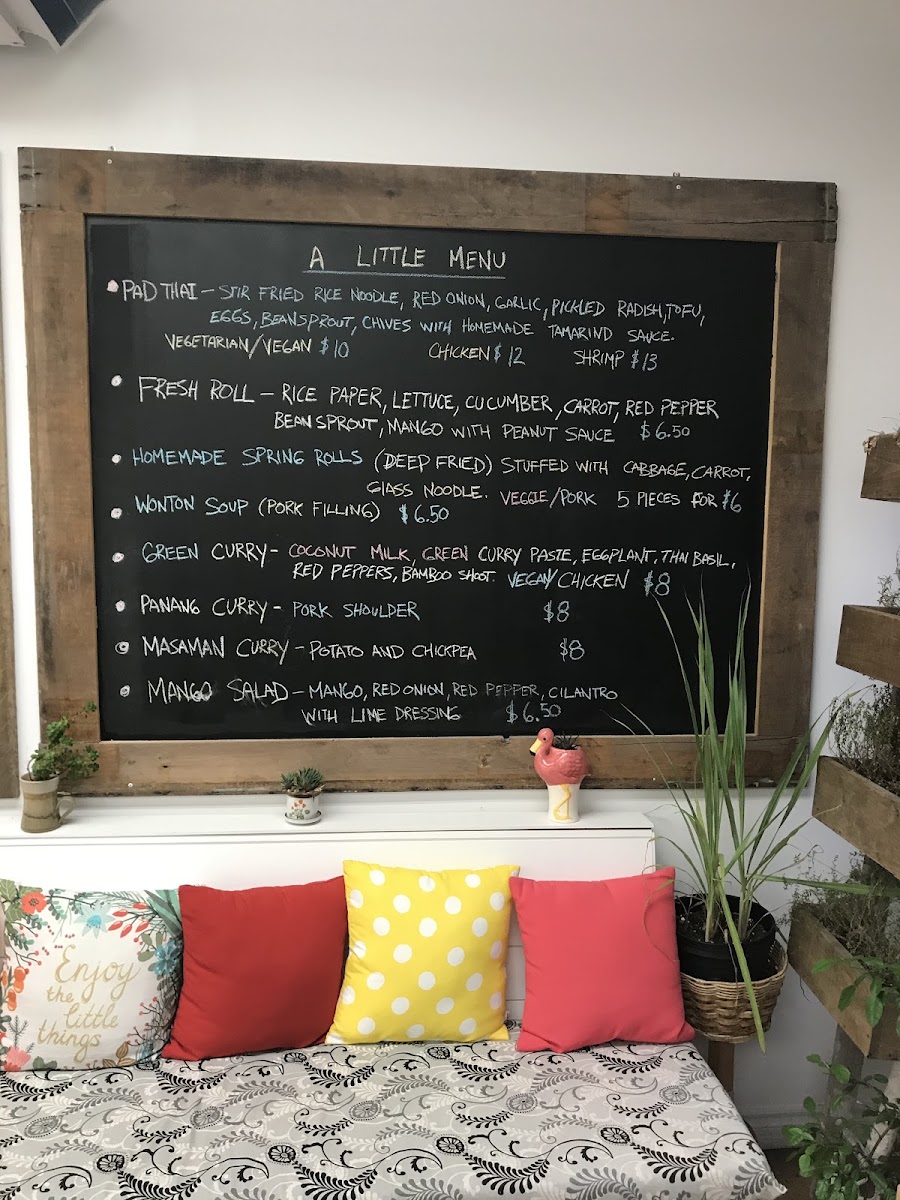 A LITTLE MENU
PAD THAI - STIR FRIED RICE NOODLE, RED ONION, GARLIC, PICKLED RADISH, TOFU,
EGGS, BEANSPROUT, CHIVES WITH HOMEMADE TAMARIND SAUCE.
VEGETARIAN/VEGAN $10 CHICKEN $12 SHRIMP $13
FRESH ROLL - RICE PAPER, LETTUCE, CUCUMBER, CARROT, RED PEPPER
BEAN SPROUT, MANGO WITH PEANUT SAUCE $6.50
HOMEMADE SPRING ROLLS (DEEP FRIED) STUFFED WITH CABBAGE, CARROT,
GLASS NOODLE. VEGGIE/PORK 5 PIECES FOR $6
WONTON SOUP (PORK FILLING) $6.50
GREEN CURRY - COCONUT MILK, GREEN CURRY PASTE, EGGPLANT, THAI BASIL,
RED PEPPERS, BAMBOO SHOOT. VEGAN/CHICKEN $8
PANANG CURRY - PORK SHOULDER $8
MASAMAN CURRY - POTATO AND CHICKPEA $8
MANGO SALAD - MANGO, RED ONION, RED PEPPER, CILANTRO
WITH LIME DRESSING $6.50
Enjoy
the
little
things